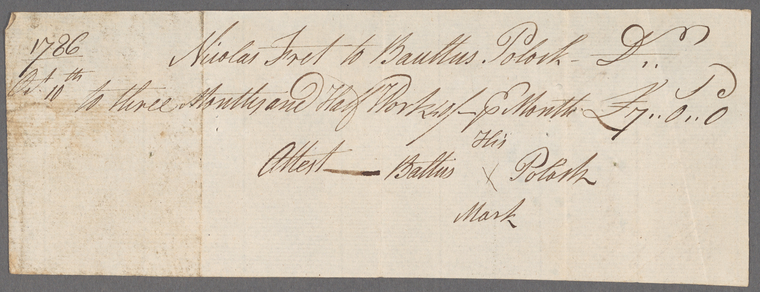 1786
Nicolas Fret to Baultus Polock - Dr
Oct. 10th to three Months and Half Work 40/ ⅌ Month £7..0..0
His
Attest — Baltus X Polock
Mark